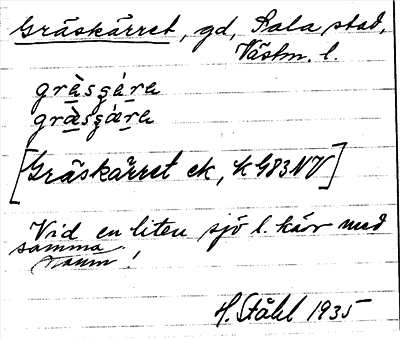 Gräskärret, gd, Sala stad,
Västm. l.
gràsɡ́ära
gràsɡ̀ära
[Gräskärret ek, K G83NV]
Vid en liten sjö l. kärr med
samma
namn!
H. Ståhl 1935